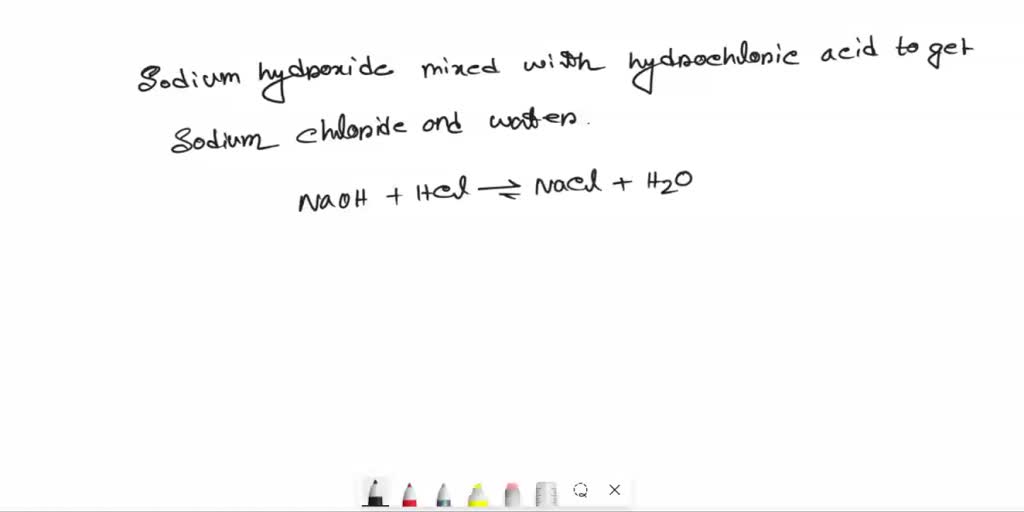 Sodium hydroxide mixed with hydrochloric acid to get
Sodium chloride and water.
NaOH + HCl ⇌ NaCl + H2O